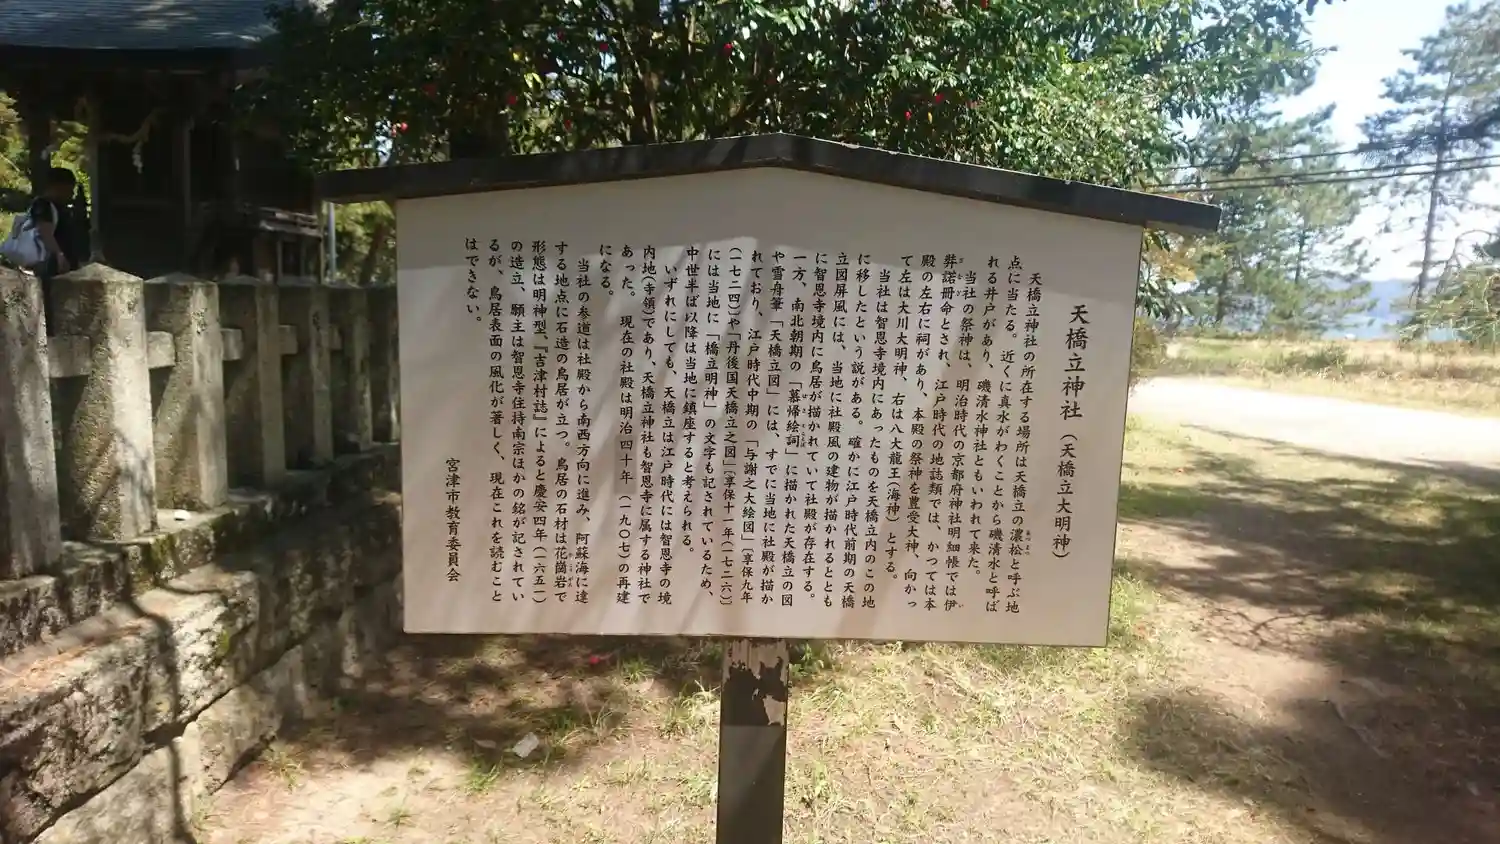 天橋立神社(天橋立大明神)
天橋立神社の所在する場所は天橋立の濃松と呼ぶ地
点に当たる。近くに真水がわくことから磯清水と呼ば
れる井戸があり、磯清水神社ともいわれて来た。
当社の祭神は、明治時代の京都府神社明細帳では伊
弉諾冊命とされ、江戸時代の地誌類では、かつては本
殿の左右に祠があり、本殿の祭神を豊受大神、向かっ
て左は大川大明神、右は八大龍王(海神)とする。
当社は智恩寺境内にあったものを天橋立内のこの地
に移したという説がある。確かに江戸時代前期の天橋
立図屏風には、当地に社殿風の建物が描かれるととも
に智恩寺境内に鳥居が描かれていて社殿が存在する。
一方、南北朝期の「慕帰絵詞」に描かれた天橋立の図
や雪舟筆「天橋立図」には、すでに当地に社殿が描か
れており、江戸時代中期の「与謝之大絵図」〔享保九年
(一七二四)〕や「丹後国天橋立之図」〔享保十一年(一七二六)〕
には当地に「橋立明神」の文字も記されているため、
中世半ば以降は当地に鎮座すると考えられる。
いずれにしても、天橋立は江戸時代には智恩寺の境
内地(寺領)であり、天橋立神社も智恩寺に属する神社で
あった。現在の社殿は明治四十年(一九〇七)の再建
になる。
当社の参道は社殿から南西方向に進み、阿蘇海に達
する地点に石造の鳥居が立つ。鳥居の石材は花崗岩で
形態は明神型、『吉津村誌』によると慶安四年(一六五一)
の造立、願主は智恩寺住持南宗ほかの銘が記されてい
るが、鳥居表面の風化が著しく、現在これを読むこと
はできない。
宮津市教育委員会